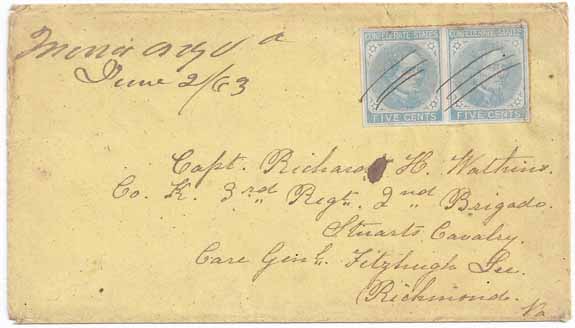 June 2/63
CONFEDERATE STATES CONFEDERATE STATES
FIVE CENTS FIVE CENTS
Capt. Richard H. Watkins.
Co. K. 3rd Regt. 2nd Brigade.
Stuarts Cavalry.
Care Genl. Fitzhugh Lee.
Richmond.
Va